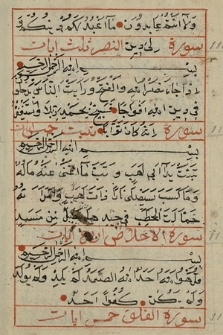 ولا انتم عابدون ما اعبد لكم دينكم و
سورة لي دين النصر ثلث ايات
بسم الله الرحمن الرحيم
اذا جاء نصر الله والفتح ورايت الناس
في دين الله افواجا فسبح بحمد ربك و
انه كان توابا تبت خمس ايات
بسم الله الرحمن الرحيم
تبت يدا ابي لهب وتب ما اغنى عنه ماله
وما كسب سيصلى نارا ذات لهب وامراته
حمالة الحطب في جيدها حبل من مسد
سورة الاخلاص ايات
بسم الله الرحمن الرحيم
قل هو الله احد الله الصمد لم يلد ولم يولد
ولم يكن له كفوا احد
سورة الفلق خمس ايات